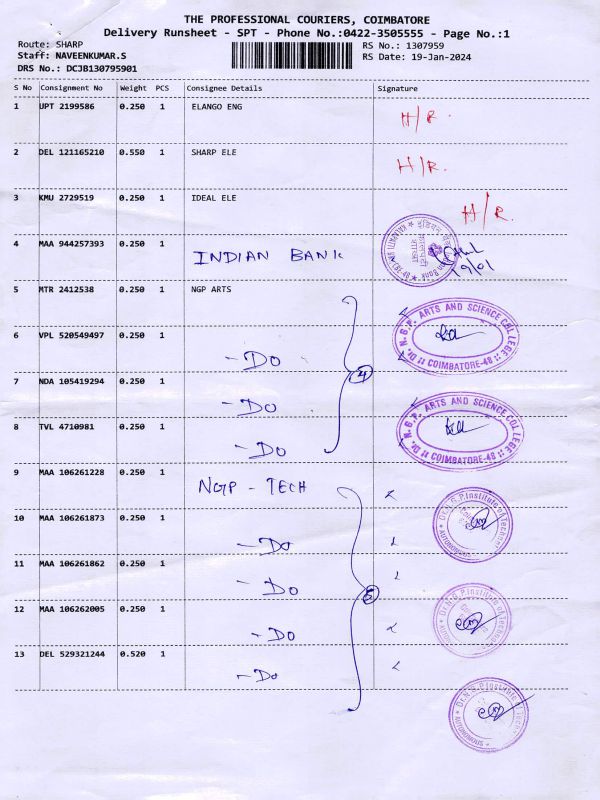 THE PROFESSIONAL COURIERS, COIMBATORE
Delivery Runsheet - SPT - Phone No.:0422-3505555 - Page No.:1
Route: SHARP
RS No.: 1307959
Staff: NAVEENKUMAR.S
RS Date: 19-Jan-2024
DRS No.: DCJB130795901
S No Consignment No Weight PCS Consignee Details Signature
1 UPT 2199586 0.250 1 ELANGO ENG H/R.
2 DEL 121165210 0.550 1 SHARP ELE H/R.
3 KMU 2729519 0.250 1 IDEAL ELE H/R.
4 MAA 944257393 0.250 1 INDIAN BANK
19/01
5 MTR 2412538 0.250 1 NGP ARTS
Dr. N.G.P. ARTS AND SCIENCE COLLEGE
COIMBATORE-48
6 VPL 520549497 0.250 1 - Do
4
7 NDA 105419294 0.250 1 - Do
Dr. N.G.P. ARTS AND SCIENCE COLLEGE
COIMBATORE-48
8 TVL 4710981 0.250 1 - Do
9 MAA 106261228 0.250 1 NGP - TECH
Dr. N.G.P. Institute of Technology
AUTONOMOUS
10 MAA 106261873 0.250 1 - Do
11 MAA 106261862 0.250 1 - Do
5
Dr. N.G.P. Institute of Technology
12 MAA 106262005 0.250 1 - Do
13 DEL 529321244 0.520 1 - Do
Dr. N.G.P. Institute of Technology
AUTONOMOUS